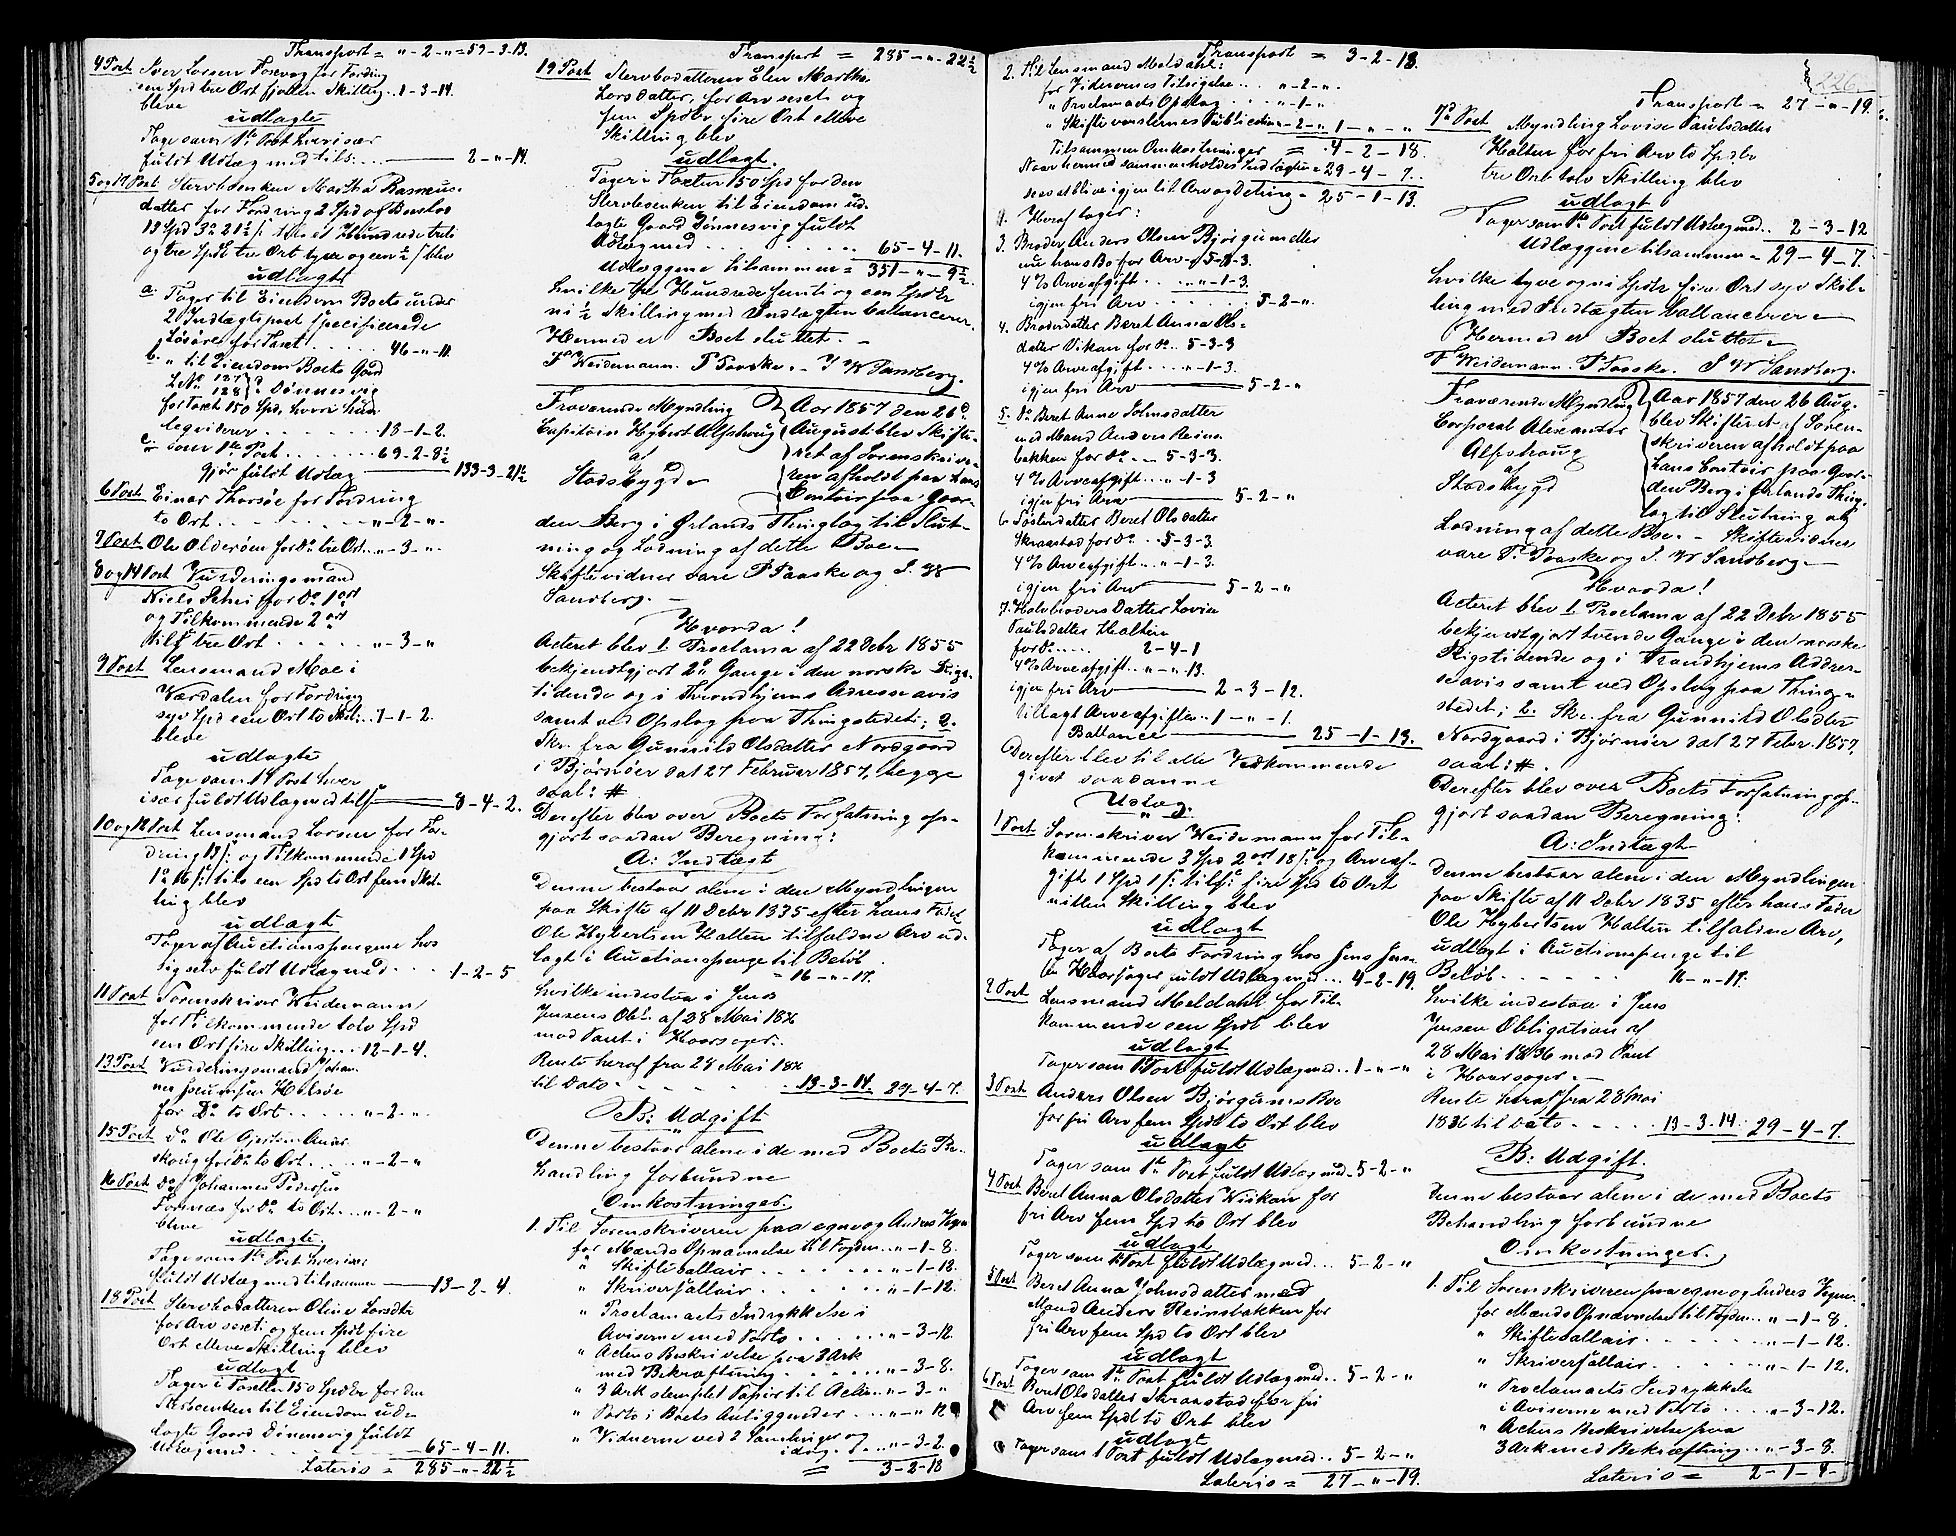 Transport = " - 2 - " = 59 - 3 - 13.
4 Post Iver Larsen for Fording
een Spd tre Ort fjorten Skilling .. 1 - 3 - 14.
bleve
udlagte
Tage som 1te Post hver især
fuldt Udlæg med tils: .... 2 - " - 14.
5 og 17 Post Stervboenken Martha Rasmus-
datter for Fordring 2 Spd og Boeslod
et Hundrede treti
og tre Spd tre Ort tyve og een ½ ß blev
udlagt
a. Tager til Eiendom Boets under
2 Indtægtspost specificerede
Løsøre for Taxt ..... 46 - " - 11.
b. " til Eiendom Boets Gaard
LNo 127
128 Dønnesvig
for Taxt 150 Spd, hvori hun
leqviderer ....... 18 - 1 - 2.
c. som 1te Post ...... 69 - 2 - 8½
gjør fuldt Udlæg 133 - 3 - 21½
6 Post Einar Thorsøe for Fordring
to Ort ....... " - 2 - "
7 Post Ole Olderøen for Do tre Ort .. " - 3 - "
8 og 14 Post Vurderingsmand
Niels Schei for Do 1 ort
og Tilkommende 2 ort
tils tre Ort ..... " - 3 - "
9 Post Lensmand Moe i
Værdalen for Fordring
syv Spd een Ort to Skil: .. 7 - 1 - 2.
bleve
udlagte
Tage som 1te Post hver
især fuldt Udlæg med tils 8 - 4 - 2.
10 og 12 Post Lensmand Larsen for For-
dring 13 ß: og Tilkommende 1 Spd
1 o 16 ß: tils een Spd to Ort fem Skil-
ling blev
udlagt
Tager af Auctionspengene hos
sig selv fuldt Udlæg med .... 1 - 2 - 5
11 Post Sorenskriver Weidemann
for Tilkommende tolv Spd
een Ort fire Skilling .. 12 - 1 - 4.
13 Post Vurderingsmand Johan-
nes Jonsen Holsøe
for Do to Ort ..... " - 2 - "
15 Post Do Ole
for Do to Ort .... " - 2 - "
16 Post Do Johannes Pedersen
for Do to Ort .. " - 2 - "
bleve
udlagte
Tage som 1te Post hver især
fuldt Udlæg med tilsammen 13 - 2 - 4.
18 Post Stervbodatteren Oline Larsdtr
for Arv sexti og fem Spd fire
Ort elleve Skilling blev
udlagt
Tager i Taxten 150 Spdr for den
Stervboenken til Eiendom ud-
lagte Gaard Dønnesvig fuldt
Udlæg med ........ 65 - 4 - 11.
Lateris = 285 - " - 22½
Transport = 285 - " - 22½
19 Post Stervbodatteren Elen Martha
Larsdatter, for Arv sexti og
fem Spdlr fire Ort elleve
Skilling blev
udlagt.
Tager i Taxten 150 Spd for den
Stervboenken til Eiendom ud-
lagte Gaard Dønnesvig fuldt
Udlæg med ........ 65 - 4 - 11.
Udlæggene tilsammen = 351 - " - 9½.
hvilke tre Hundrede femti og een Spdlr
ni ½ Skilling med Indtægten ballancerer.
Hermed er Boet sluttet. -
F Weidemann. P Paaske. - I W Sandberg.
Fraværende Myndling
Capitain Hybert Alfshaug
af
Stadsbygd
Aar 1857 den 26de
August blev Skifte-
ret af Sorenskrive-
ren afholdt paa hans
Contoir paa Gaar-
den Berg i Ørlands Thinglag til Slut-
ning og Lodning af dette Boe. -
Skiftevidner vare P Paaske og I. W
Sandberg. -
Hvorda!
Acteret blev 1. Proclama af 22 Debr 1855
bekjendtgjort 2de Gange i den norske Rigs-
tidende og i Trondhjems Adresseavis
samt ved Opslag paa Thingstedet; 2.
Skr. fra Gunnild Olsdatter Nordgaard
i Bjørnøer dat 27 Februar 1857, begge
saal: #
Derefter blev over Boets Forfatning op-
gjort saadan Beregning:
A: Indtægt
Denne bestaar alene i den Myndlingen
paa Skifte af 11 Debr 1835 efter hans Fader
Ole Hybertsen Halten tilfaldne Arv ud-
lagt i Auctionspenge til Beløb
= 16 - " - 17.
hvilke indestaa i Jens
Jensens Obl: af 28 Mai 1836
mod Pant i Hoorsager.
Rente heraf fra 28 Mai 1836
til Dato ...... 13 - 3 - 14 29 - 4 - 7.
B: Udgift
Denne bestaar alene i de med Boets Be-
handling forbundne
Omkostninger.
1. Til Sorenskriveren paa egne og Andres Vegne
for Mænds Opnævnelse til Fogden .. " - 1 - 8.
" Skiftesallair ....... " - 1 - 12.
" Skriversallair ...... " - 1 - 12.
" Proclamaets Indrykkelse i
Aviserne med Porto ..... " - 3 - 12.
" Actens Beskrivelse paa 3 Ark
med Bekræftning ....... " - 3 - 8.
" 3 Ark stemplet Papir til Acten .. " - 3 - "
" Porto i Boets Anliggender .... " - " 12
" Vidnerne ved 2 Samlinger og
idag ..... " - 3 - 2.
= 3 - 2 - 18
Transport = 3 - 2 - 18.
2. Til Lensmand Meldahl:
for Vidnernes Tilsigelse .. " - 2 - "
" Proclamaets Opslag .... " - 1 - "
" Skifteværslernes Publication " - 2 - " 1 - " - "
Tilsammen Omkostninger = 4 - 2 - 18.
Naar hermed sammenholdes Indtægten = 29 - 4 - 7.
sees at blive igjen til Arv og Deling = 25 - 1 - 13.
Heraf tager:
3. Broder Anders Olsen Bjørgum eller
nu hans Bo for Arv
4 % Arveafgift .... " - 1 - 3.
igjen fri Arv ...... 5 - 2 - "
4. Broderdatter Beret Anna Ols-
datter Vikan for Do .. 5 - 3 - 3
4 % Arveafgift .... " - 1 - 3.
igjen fri Arv 5 - 2 - "
5. Do Beret Anne Johnsdatter
med Mand Anders Reins-
bakken for Do .. 5 - 3 - 3.
4 % Arveafgift ... " - 1 - 3
igjen fri Arv 5 - 2 - "
6. Søsterdatter Beret Olsdatter
Skraastad for Do .. 5 - 3 - 3.
4 % Arveafgift ... " - 1 - 3.
igjen fri Arv 5 - 2 - "
7. Halvbroders Datter Lovise
Paulsdatter Halten
for Do .... 2 - 4 - 1
4 % Arveafgift .. " - " - 13.
igjen fri Arv 2 - 3 - 12.
tillagt Arveafgiften .. 1 - " - 1.
Ballance 25 - 1 - 13.
Derefter blev til alle Vedkommende
givet saadanne
Udlæg.
1 Post Sorenskriver Weidemann for Til-
kommende 3 Spd 2 ort 18 ß: og Arveaf-
gift 1 Spd 1 ß: tils: fire Spd to Ort
nitten Skilling blev
udlagt
Tager af Boets Fordring hos Jens Jen-
sen Hoorsager fuldt Udlæg med ... 4 - 2 - 19.
2 Post Lensmand Meldahl for Til-
kommende een Spdlr blev
udlagt
Tager som 1te Post fuldt Udlæg med .. 1 - " - "
3 Post Anders Olsen Bjørgums Bo
for fri Arv fem Spdlr to Ort blev
udlagt
Tager som 1te Post fuldt Udlæg med .. 5 - 2 - "
4 Post Beret Anna Olsdatter Wiikan for
fri Arv fem Spd to Ort blev
udlagt
Tager som 1te Post fuldt Udlæg med ... 5 - 2 - "
5 Post Beret Anna Johnsdatter med
Mand Anders Reinsbakken for
fri Arv fem Spd to Ort blev
udlagt
Tager som 1te Post fuldt Udlæg med .. 5 - 2 - "
6 Post Beret Olsdatter Skraastad for fri
Arv fem Spdlr to Ort blev
udlagt
Tager som 1 Post fuldt Udlæg med .. 5 - 2 - "
Lateris = 27 - " - 19.
226
Transport = 27 - " - 19.
7de Post Myndling Lovise Paulsdatter
Halten for fri Arv to Spdlr
tre Ort tolv Skilling blev
udlagt
Tager som 1te Post fuldt Udlæg med .. 2 - 3 - 12
Udlæggene tilsammen = 29 - 4 - 7.
hvilke tyve og ni Spdlr fire Ort syv Skil-
ling med Indtægten ballancerer. -
Hermed er Boet sluttet. -
F Weidemann. P Paaske. I W Sandberg.
Fraværende Myndling
Corporal Alexander
Alfshaug
af
Stadsbygd
Aar 1857 den 26 Aug.
blev Skifteret af Soren-
skriveren afholdt paa
hans Contoir paa Gaar-
den Berg i Ørlands Thing-
lag til Slutning og
Lodning af dette Boe. - Skiftevidner
vare P. Paaske og I. W Sandberg. -
Hvorda!
Acteret blev 1. Proclama af 22 Debr 1855
bekjendtgjort tvende Gange i den norske
Rigstidende og i Trondhjems Addres-
seavis samt ved Opslag paa Thing-
stedet; 2. Skr. fra Gunnild Olsdtr
Nordgaard i Bjørnøer dat 27 Febr. 1857,
saal: #.
Derefter blev over Boets Forfatning op-
gjort saadan Beregning:
A: Indtægt
Denne bestaar alene i den Myndlingen
paa Skifte af 11 Debr 1835 efter hans Fader
Ole Hybertsen Halten tilfaldne Arv,
udlagt i Auctionspenge til
Beløb ...... 16 - " - 17.
hvilke indestaa i Jens
Jensen Obligation af
28 Mai 1836 mod Pant
i Hoorsager. -
Rente heraf fra 28 Mai
1836 til Dato ..... 13 - 3 - 14. 29 - 4 - 7.
B: Udgift.
Denne bestaar alene i de med Boets
Behandling forbundne
Omkostninger.
1. Til Sorenskriveren paa egne og Andres Vegne:
for Mænds Opnævnelse til Fogden .. " - 1 - 8.
" Skiftesallair ....... " - 1 - 12.
" Skriversallair ...... " - 1 - 12.
" Proclamaets Indrykkelse
i Aviserne med Porto .... " - 3 - 12.
" Actens Beskrivelse paa
3 Ark med Bekræftning .. " - 3 - 8.
Lateris = 2 - 1 - 4